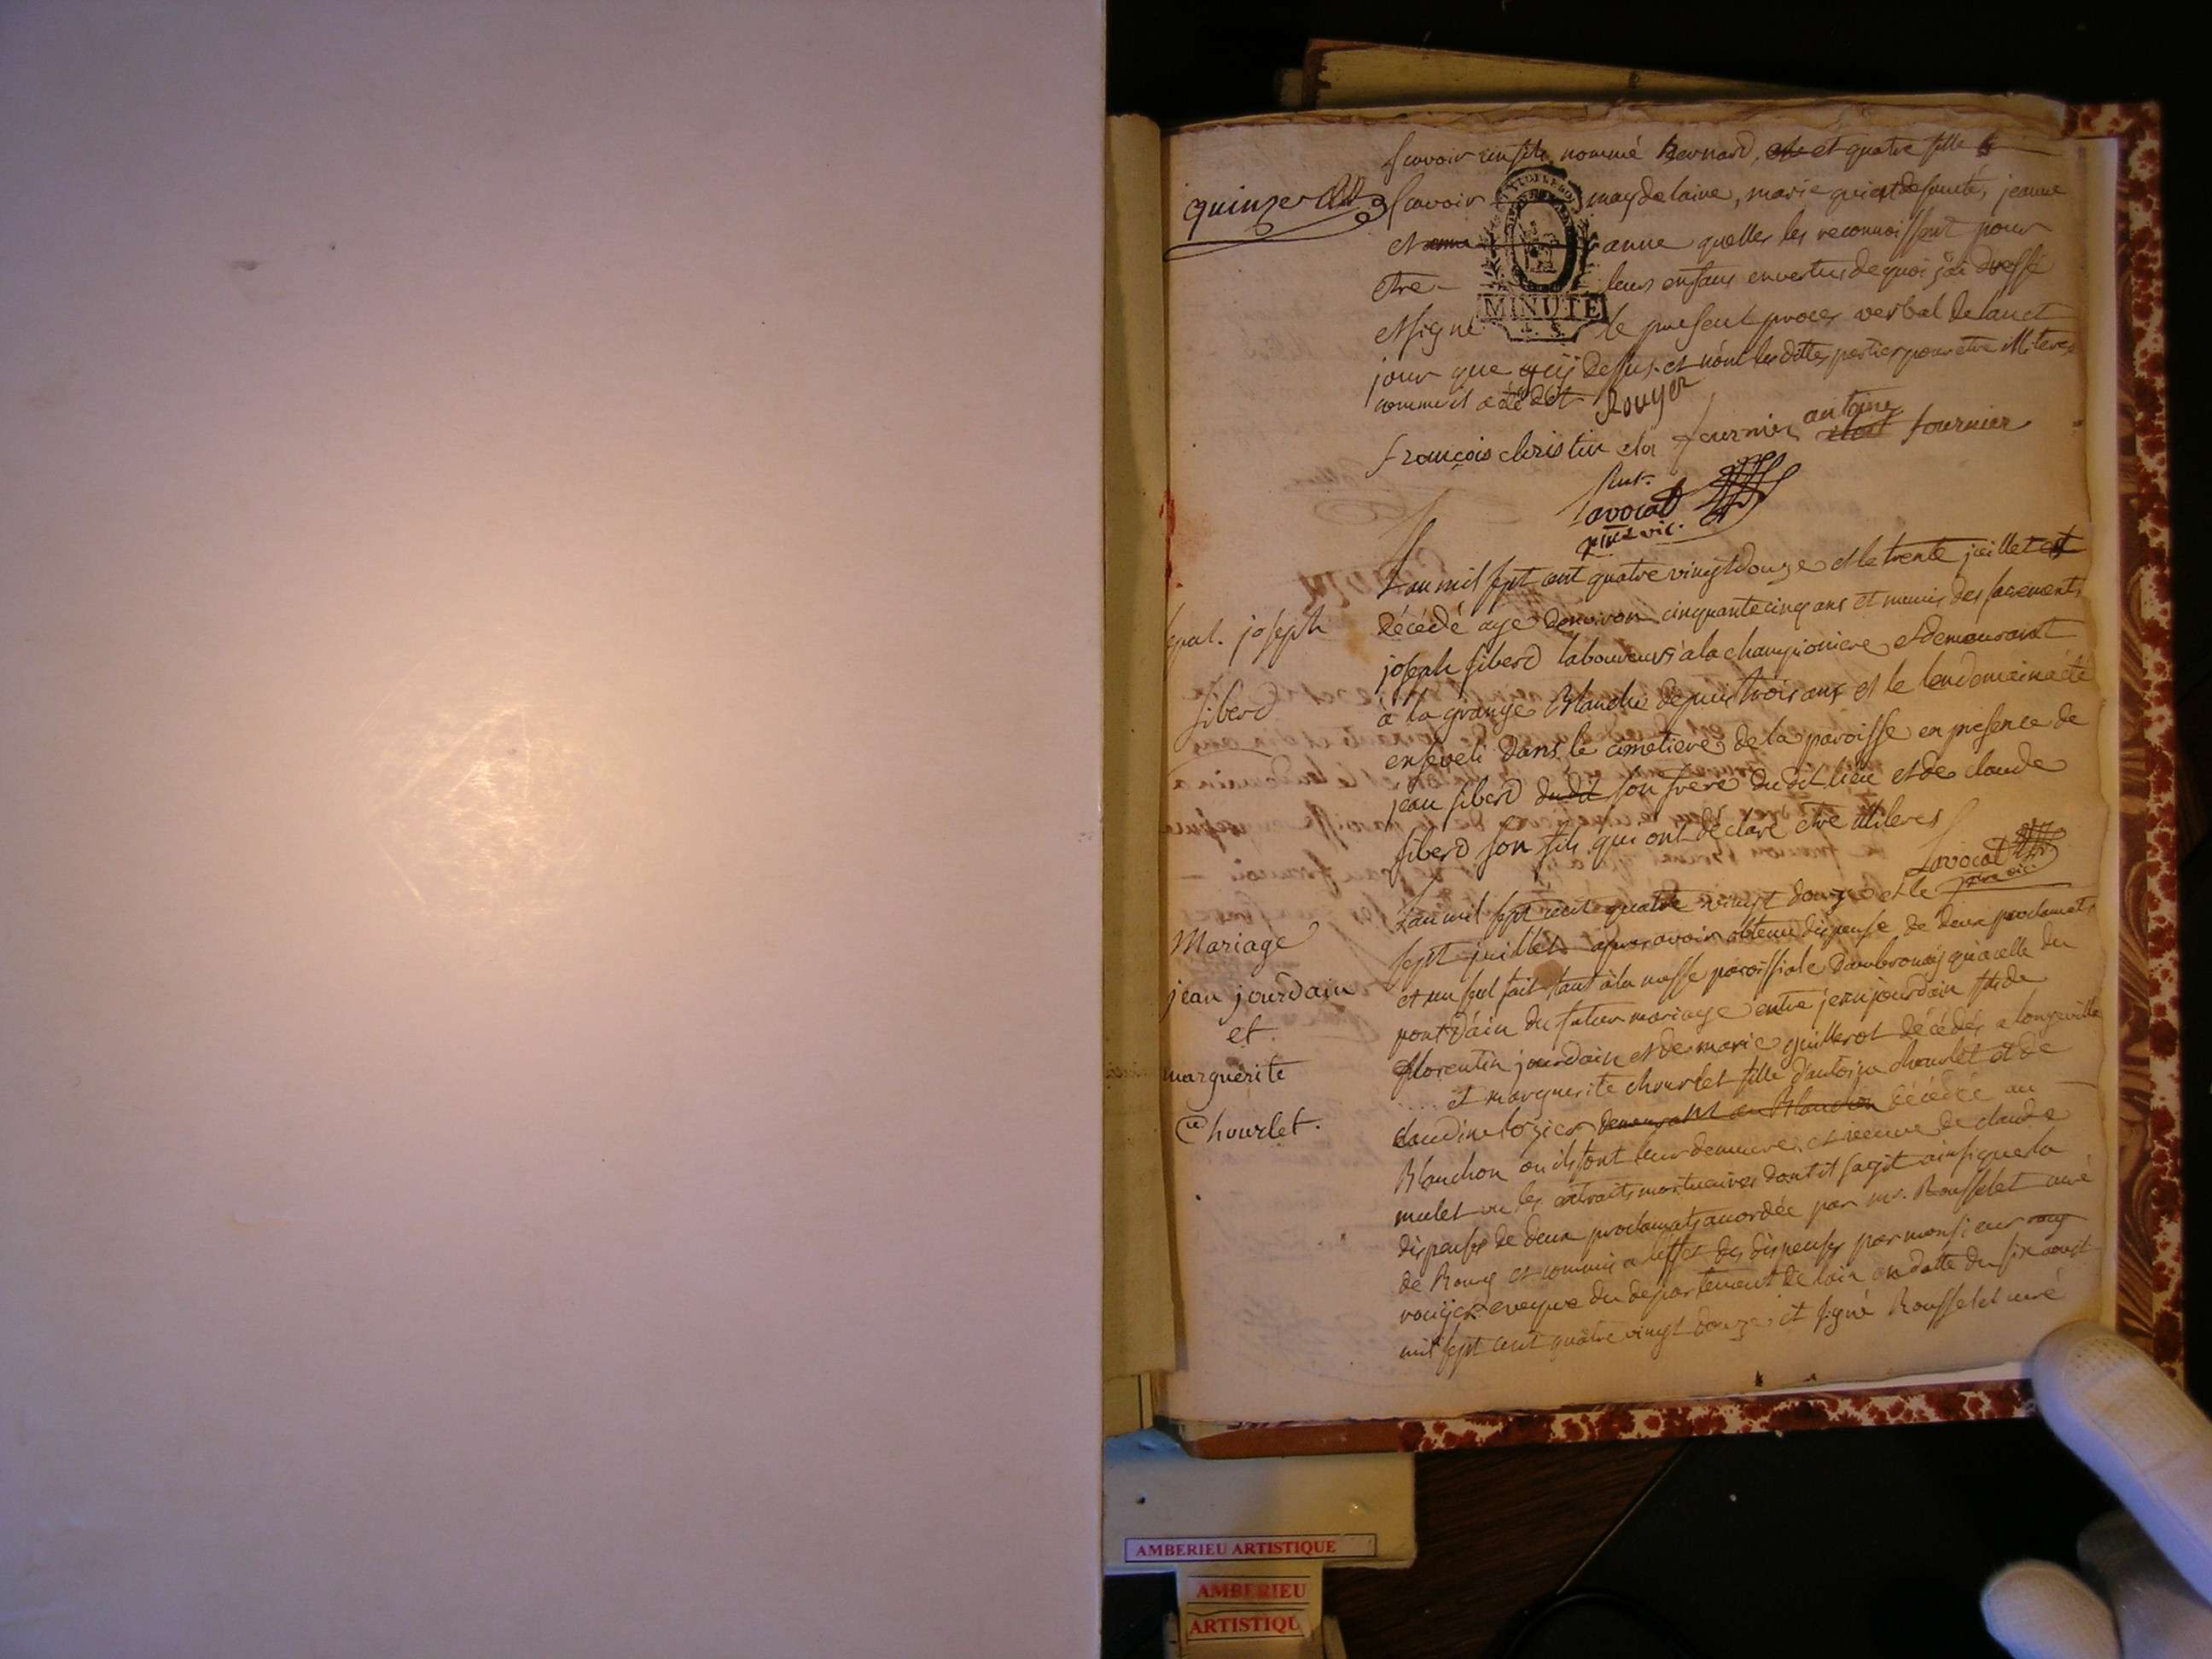 scavoir un fils nommé Bernard, et quatre fille
quinze
scavoir magdelaine, marie qui est defunte, jeanne
et anne anne quelles les reconnoissent pour
etre leurs enfans en vertus de quoi j'ai dressé
MINUTE
et signé le present proces verbal de lan et
jour que dessus et nont les dittes parties pour etre illiteres
comme il a été dit Rouyer
françois christin eloi fournier antoine fournier
Lavocat
ptre vic.
L'an mil sept cent quatre vingt douze et le trente juillet est
décédé agé denviron cinquante cinq ans et munis des sacrements
sepul. joseph
siberd
joseph siberd laboureur à la championiere et demeurant
à la grange Blanche depuis trois ans et le lendemain a été
enseveli dans le cimetiere de la paroisse en presence de
jean siberd dudit son frere dudit lieu et de claude
siberd son fils qui ont déclaré etre illiteres
Lavocat
ptre vic.
Mariage
jean jourdain
et
marguerite
Chourlet.
L'an mil sept cent quatre vingt douze et le
sept juillet apres avoir obtenu dispense de deux proclamats
et un seul fait tant à la messe paroissiale d'ambronay qu'a celle du
pont d'ain du futur mariage entre jean jourdain fils de
florentin jourdain et de marie guillerot décédés a longeville
.... et marguerite chourlet fille d'antoine chourlet et de
claudine demeurant au Blanchon décédée au
Blanchon ou ils font leur demeure, et veuve de claude
mulet vu les extraits mortuaires dont il sagit ainsi que la
dispense de deux proclamats accordée par mr. Rousselet curé
de Bourg et commis a l'effet des dispenses par monsieur
royer eveque du departement de lain en datte du six aoust
mil sept cent quatre vingt douze et signé Rousselet curé
AMBERIEU ARTISTIQUE
AMBERIEU
ARTISTIQU